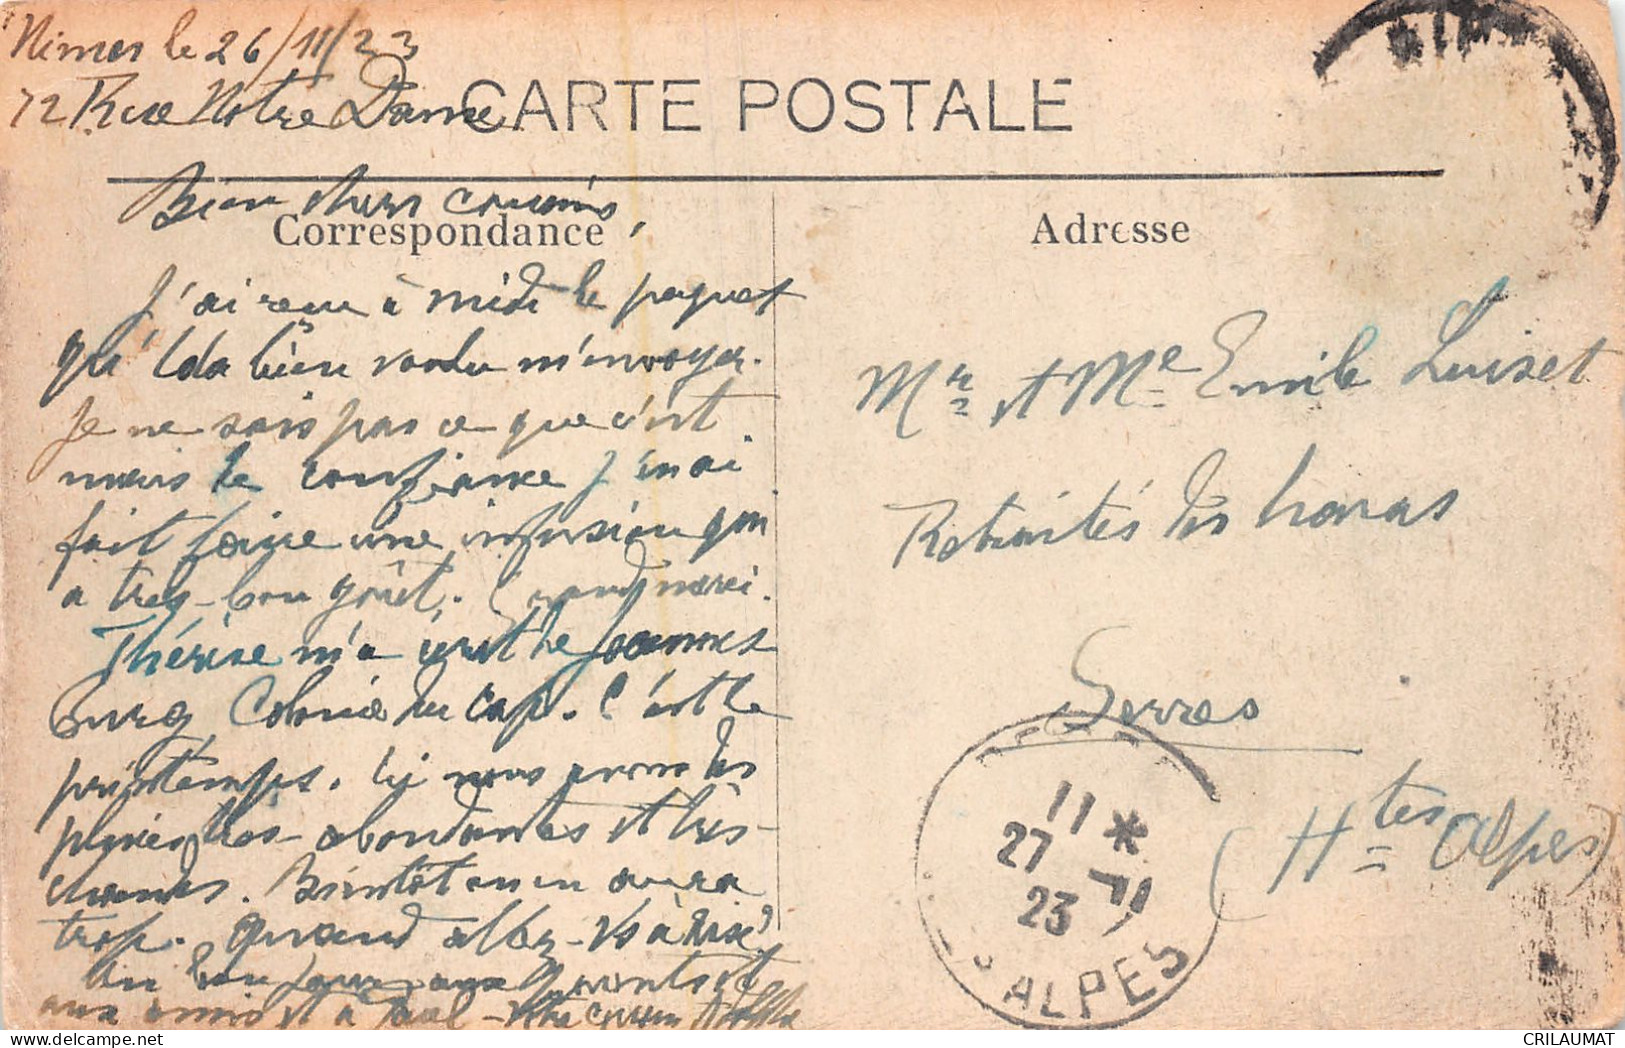 Nimes le 26/11/23
72 Rue Notre Dame
CARTE POSTALE
Bien chers cousins,
Correspondance
J'ai reçu à midi le paquet
qu'Ida bien voulu m'envoyer.
Je ne sais pas ce que c'est
mais de confiance j'en ai
fait faire une infusion qui
a très-bon goût. Grand merci.
Thérèse m'a écrit de Joannes
Burg Colonie du Cap. C'est le
printemps. Ici nous avons des
pluies très-abondantes et très-
chaudes. Bientôt on en aura
trop. Quand allez-vs à
Un bonjour aux parents et
aux amis et à Paul - Votre cousin
Adresse
Mr et Me Emile Luiset
Retraités des haras
Serres
(Htes Alpes)
11 *
27 - 11
23
ALPES
CRILAUMAT